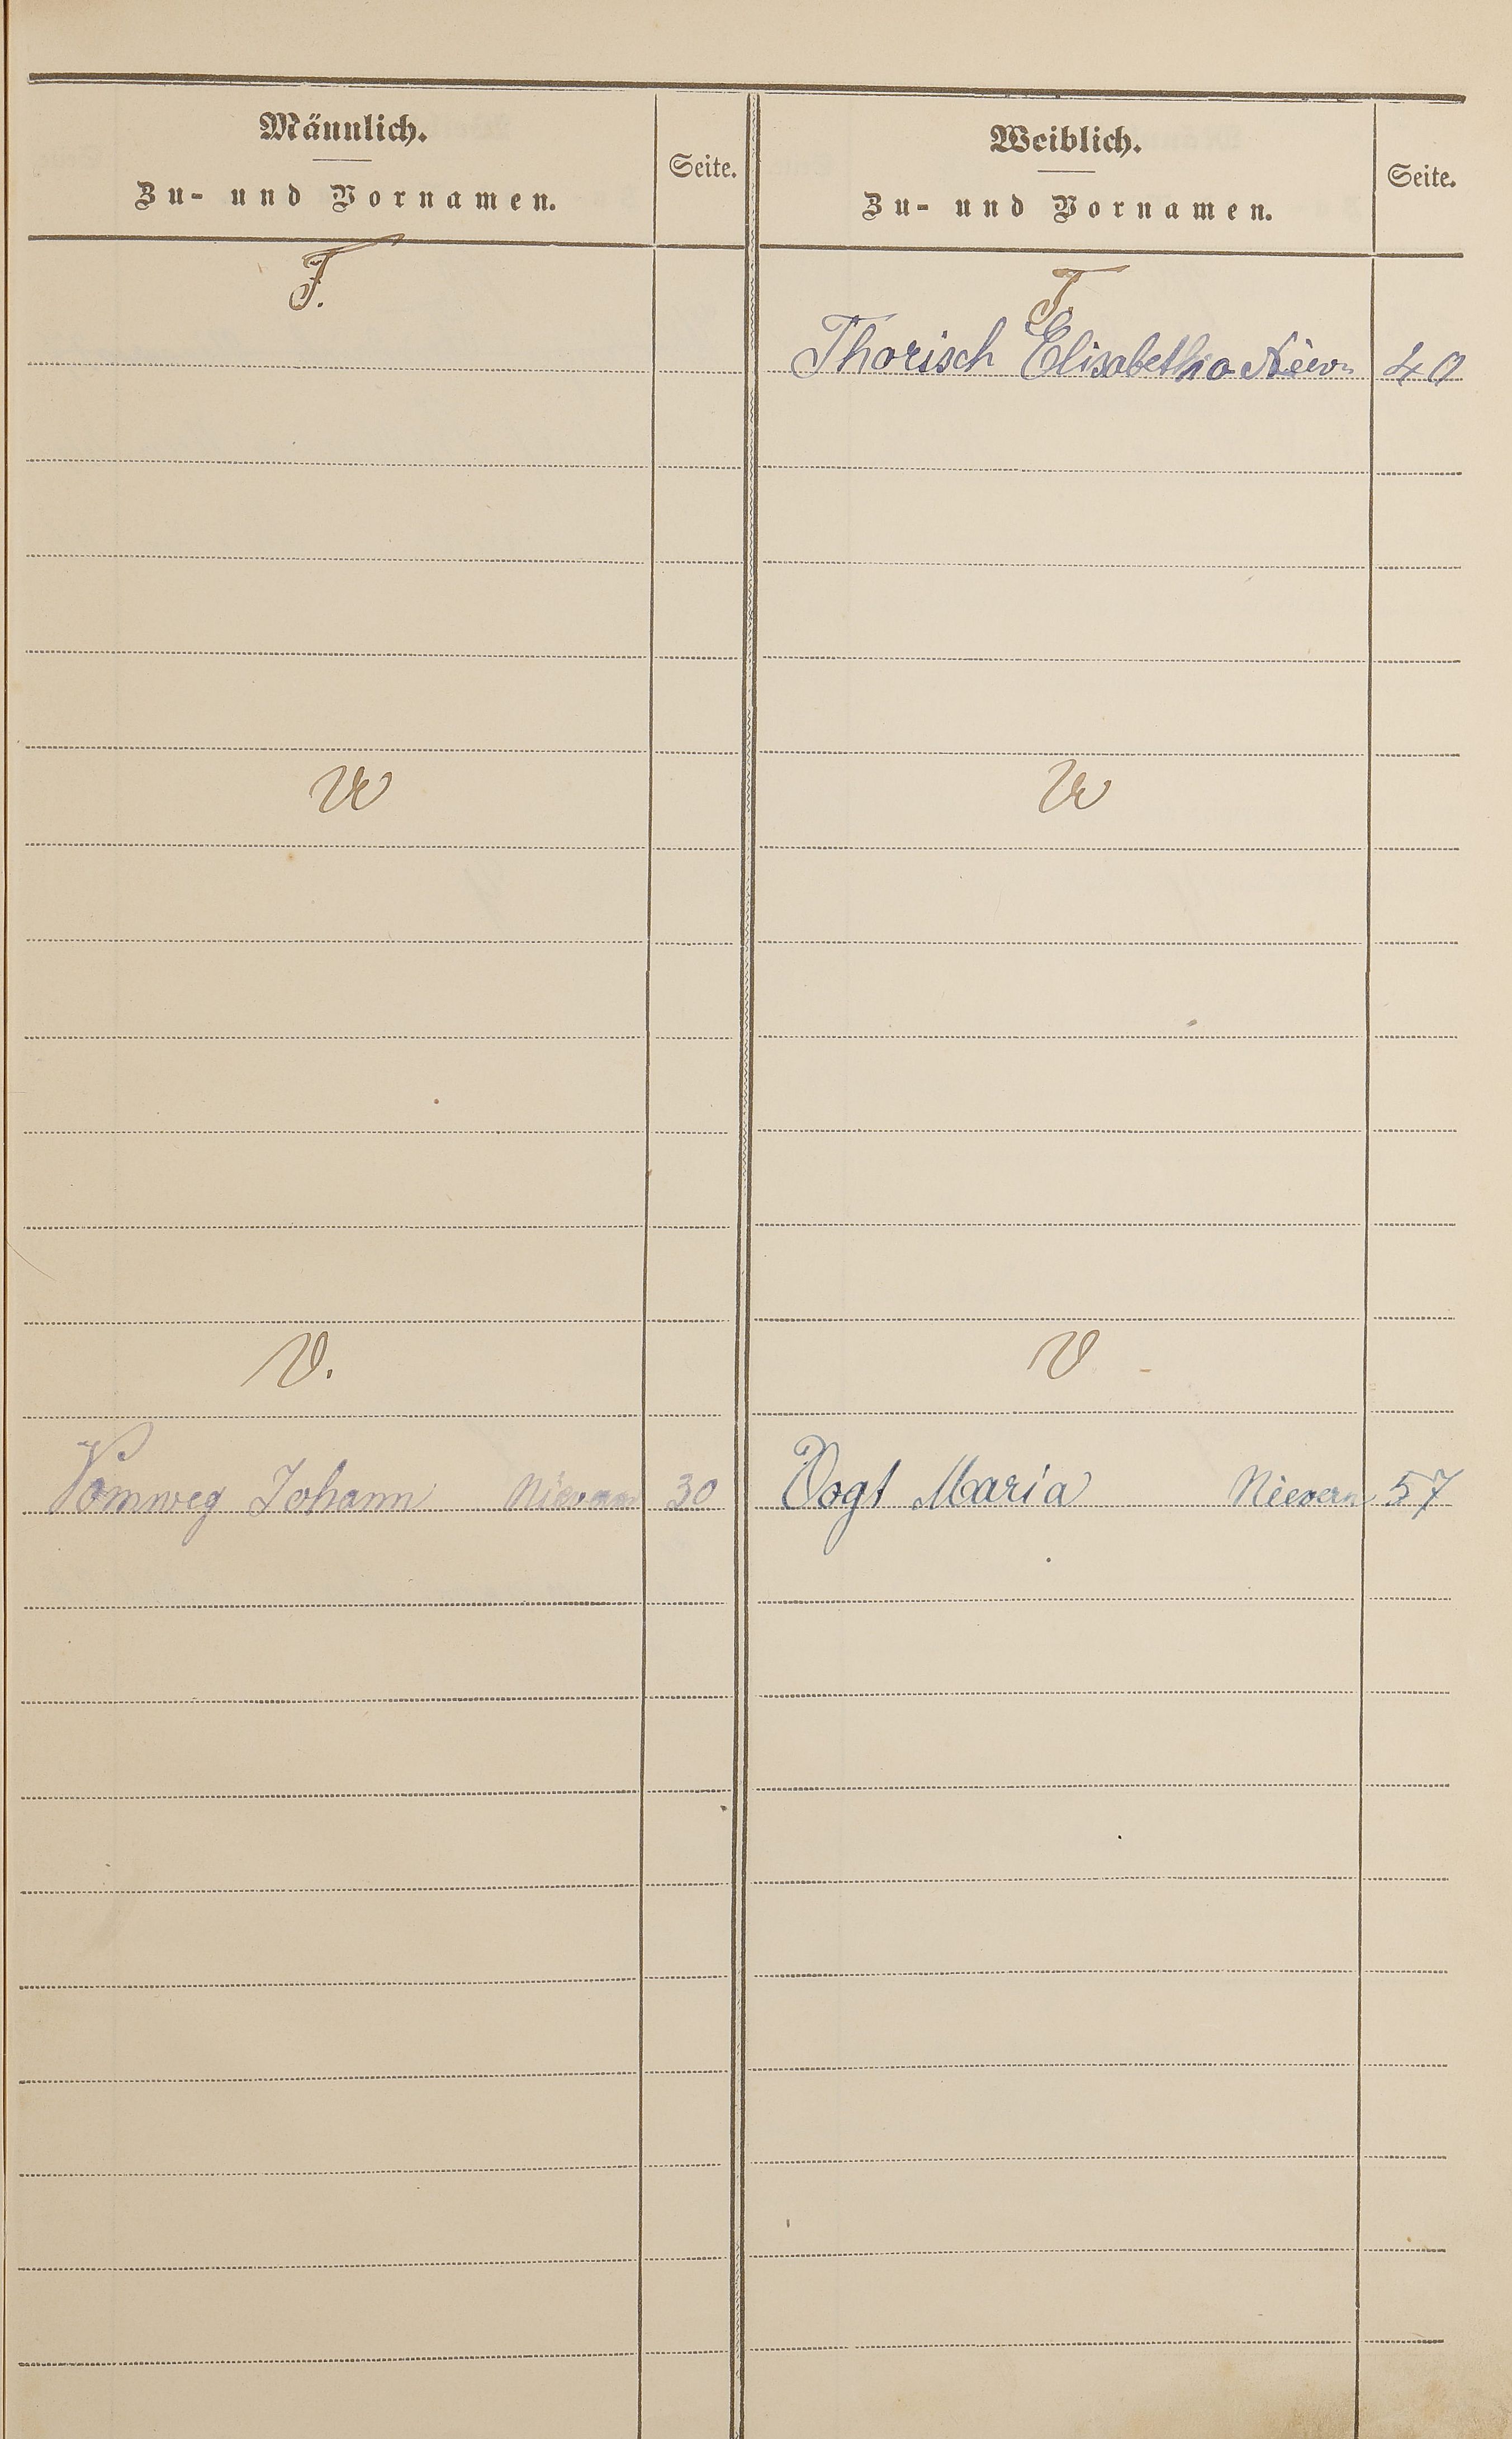 Männlich.
Zu- und Vornamen.
Seite.
Weiblich.
Zu- und Vornamen.
Seite.
T.
T.
Thorisch Elisabetha 40
V.
V
Vomweg Johann Nievern 30
Vogt Maria Nievern 57